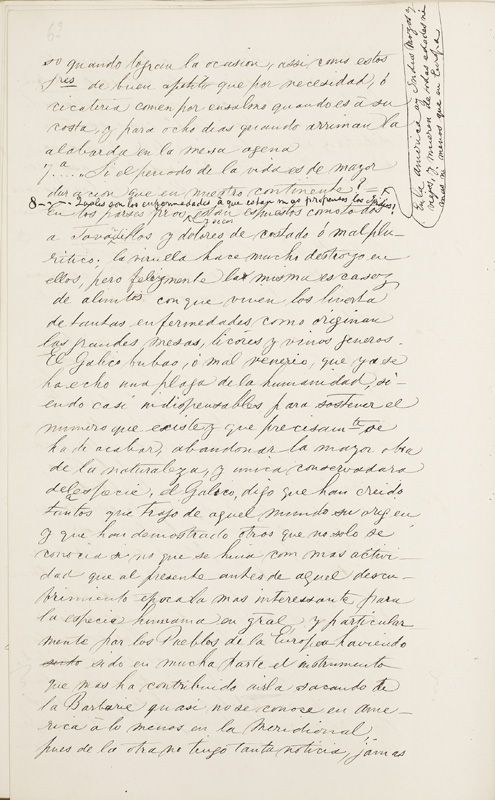 63
so quando logran la ocasion, assi como estos
fres de buen apetito que por necesidad, ó
cicateria comen por ensalmo quando es á su
costa, y para ocho dias quando arriman la
alabarda en la mesa agena
7ª..... Si el periodo de la vida es de mayor
duracion que en nuestro continente? =
8 - - Quales son las enfermedades á que estan mas propensos los Indios?
En los paises frios, estan expuestos como todos
a Tavardillos y dolores de costado ó mal plu-
ritico: la viruella hace mucho destrozo en
ellos, pero felizmente la misma escasez
de alimtos con que viven los liverta
de tantas enfermedades como originan
las grandes mesas, licores y vinos generos.
El Galico bubao, ó mal venerio, que ya se
ha echo una plaga de la humanidad, si-
endo casi indispensables para sostener el
numero que existe y que precisamte se
ha de acabar, abandonar la mayor obra
de la naturaleza, y unica conservadora
de la especie, el Galico, digo que han creido
tantos que trajo de aquel mundo su origen
y que han demostrado otros que no solo se
conocia si no que se hiva con mas activi-
dad que al presente antes de aquel descu-
brimiento epoca la mas interessante para
la especie humana en gral y particular
mente por los Pueblos de la Europa haviendo
sido en mucha parte el instrumento
que mas ha contribuido a irla sacando de
la Barbarie quasi no se conoce en Ame-
rica á lo menos en la Meridional,
pues de la otra no tengo tanta noticia, jamas
En la America ay Indios Mozos y
viejos, y mueren de todas edades ni
mas ni menos que en Europa